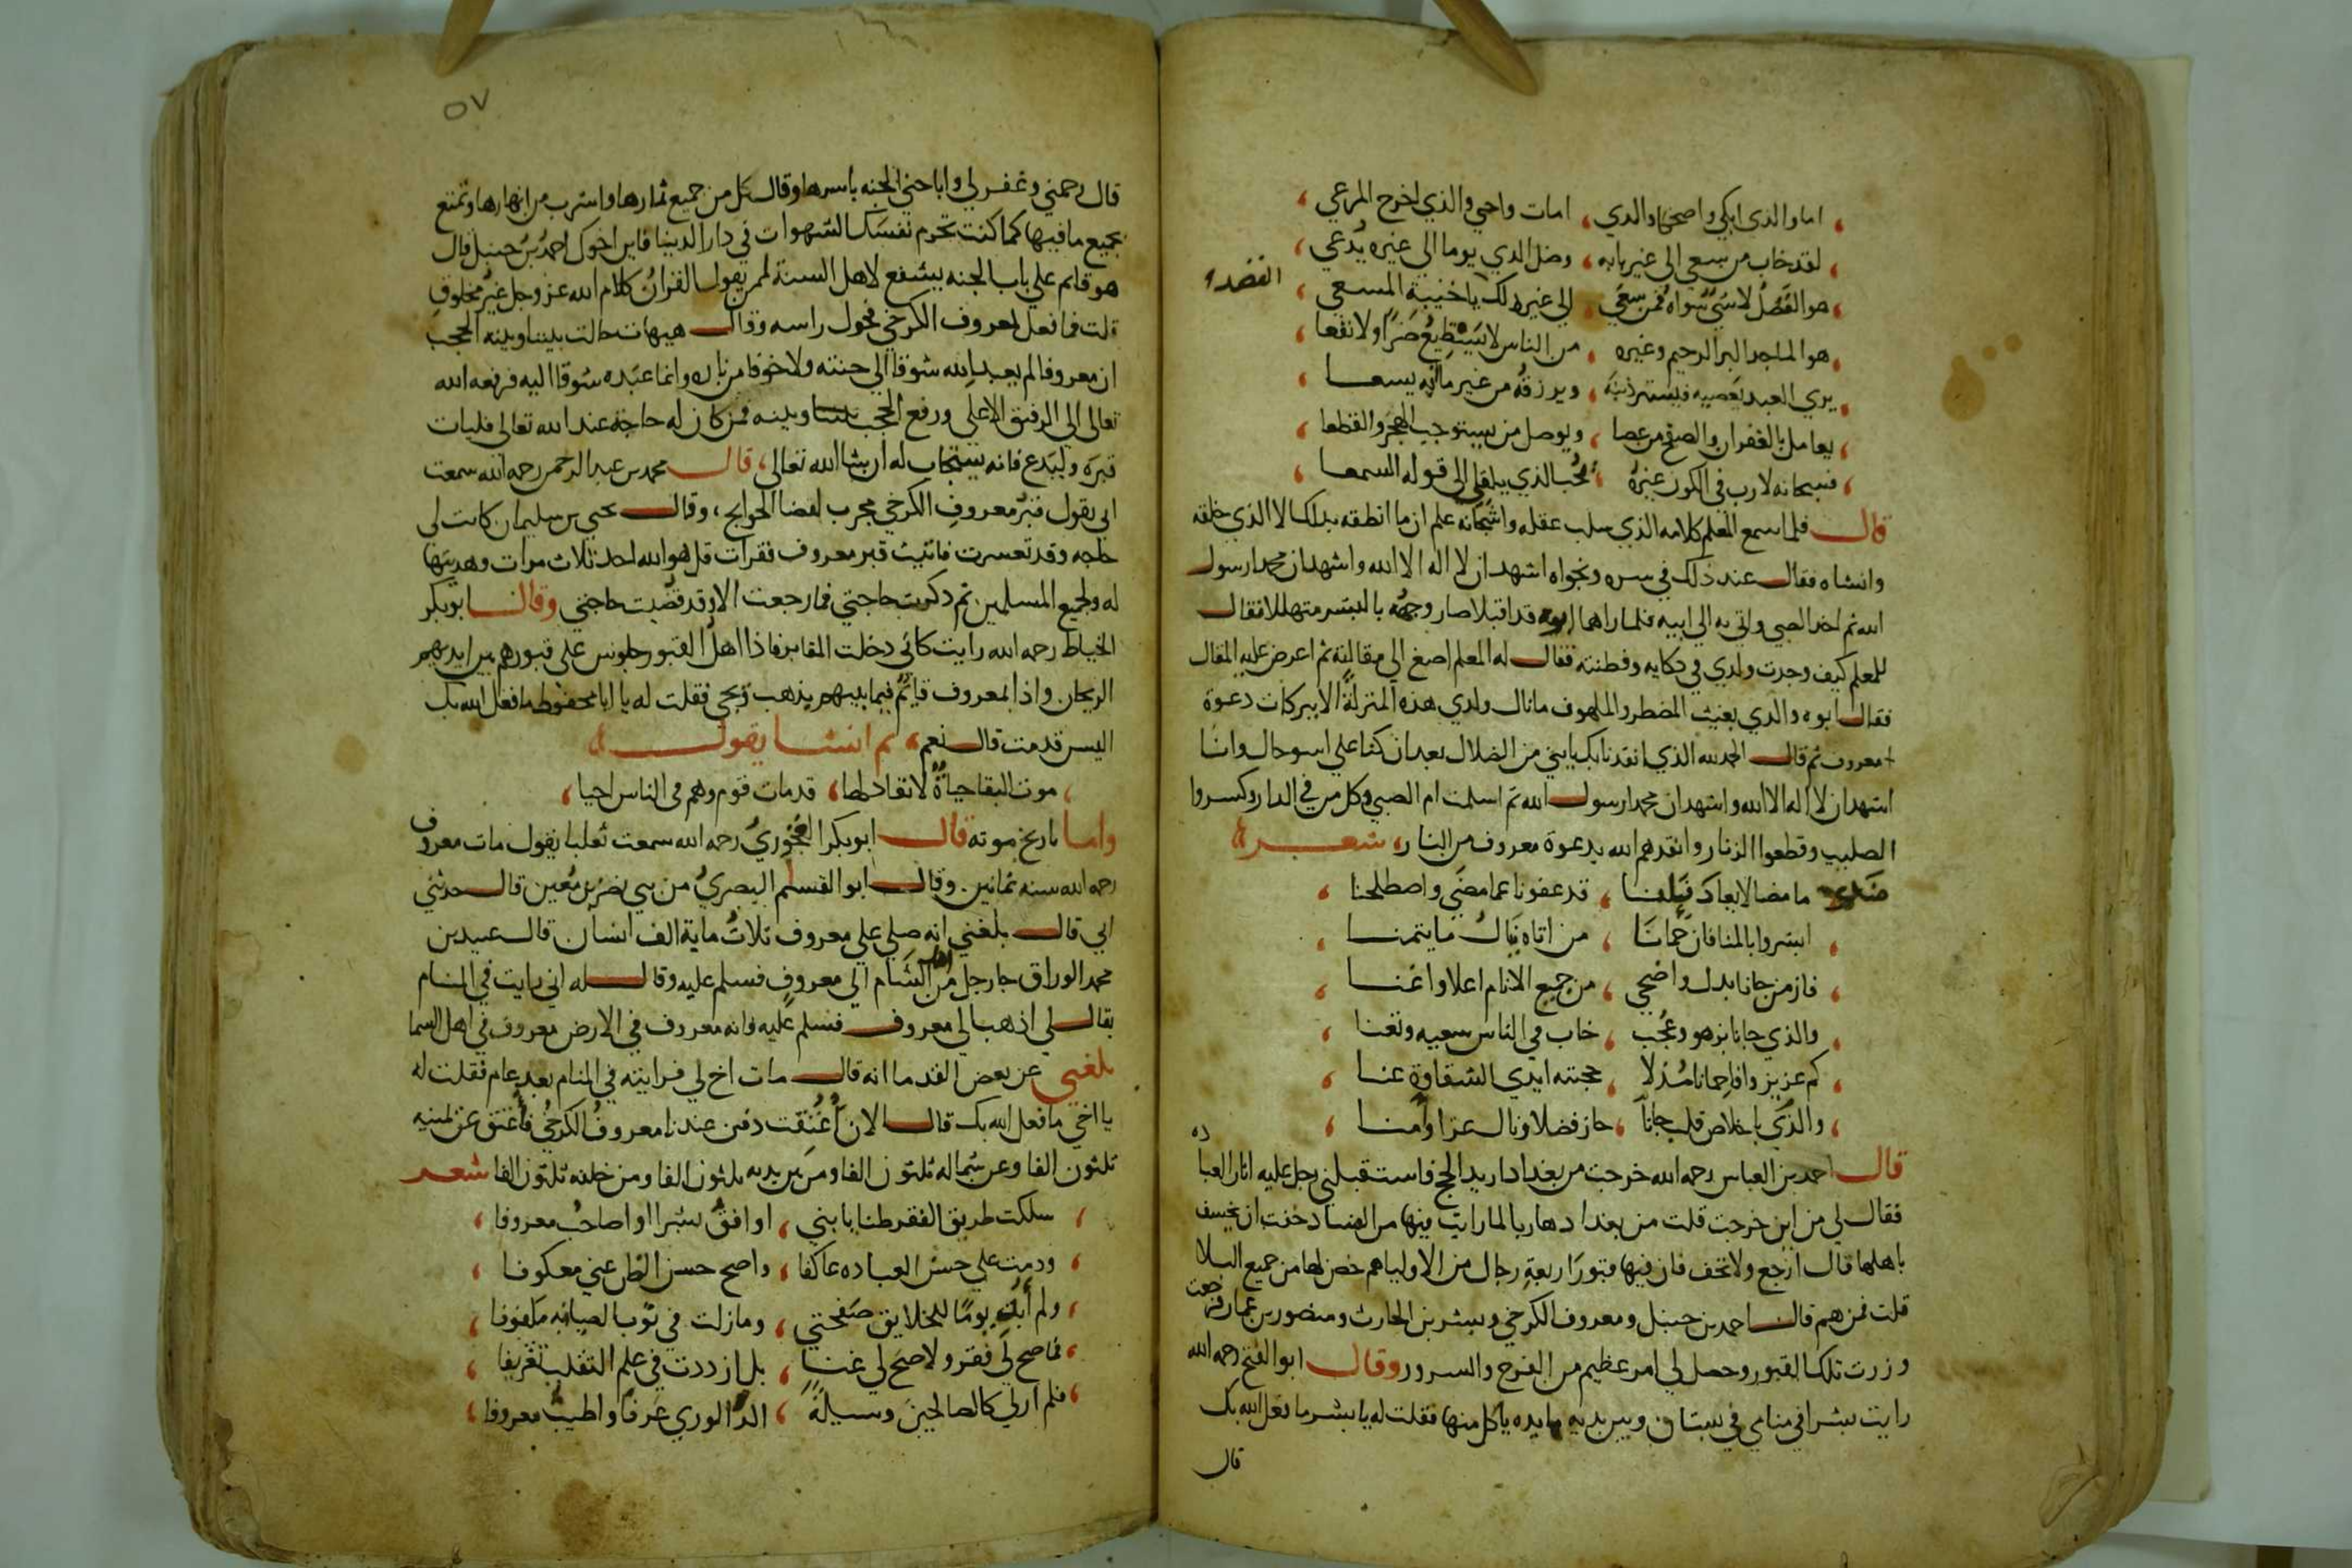 اما والذى ابكى واضحك والدي ، امات واحي والذي اخرج المرعي ،
لقد خاب من سعي الى غير بابه ، وضل الدي يوما الي غيره يُدعي ،
هو القصد لا شيٌ سواه فمن سعي ، الي غير ذلك يا خيبة المسعي ،
القصد
هو الماجد البر الرحيم وغيره ، من الناس لا يستطيع ضرا ولا نفعا ،
يري العبد يعصيه فيستر ذنبه ، ويرزقه من غير ما انه يسعا ،
يعامل بالغفران والصفح من عصا ، ويوصل من يستوجب الهجر والقطعا ،
فسبحانه لا رب في الكون غيره ، نحب الذي يلقي الى قوله السمعا ،
قال فلما سمع المعلم كلامه الذي سلب عقله واشجانه علم ان ما انطقه بذلك الا الذي خلقه
وانشاه فقال عند ذلك في سره ونجواه اشهد ان لا اله الا الله واشهد ان محمدا رسول
الله ثم اخد الصبي واتي به الي ابيه فلما راهما ابوه قد اقبلا صار وجهه بالبشر متهللا فقال
للمعلم كيف وجدت ولدي في دكايه وفطنته فقال له المعلم اصغ الي مقالته ثم اعرض عليه المقال
فقال ابوه والدي يغيث المضطر والملهوف ما نال ولدي هذه المنزلة الا ببركات دعوة
معروف ثم قال الحمد لله الذي انقدنا بك يا بني من الضلال بعد ان كنا علي اسو حال وانا
اشهد ان لا اله الا الله واشهد ان محمدا رسول الله ثم اسلمت ام الصبي وكل من في الدار وكسروا
الصليب وقطعوا الزنار وانقدهم الله بدعوة معروف من النار ، شعر
ما مضا لا يعاد قبلنا ، قد عفونا عما مضي واصطلحنا ،
ابشروا بالمنا فان حمانا ، من اتاه نال ما يتمنا ،
فاز من جانا بدل واضحي ، من جميع الانام اعلا واغنا ،
والذي جانا بزهو وعُجب ، خاب في الناس سعيه وتعنا ،
كم عزيز وافا حمانا مُذلا ، حجبته ايدي الشقاوة عنا ،
والذي باخلاص قلب جانا ، حاز فضلا ونال عزا وامنا ،
قال احمد بن العباس رحمه الله خرجت من بغداد اريد الحج فاستقبلني رجل عليه اثار العباده
فقال لي من اين خرجت قلت من بغداد هاربا لما رايت فيها من الفساد خفت ان يخسف
باهلها قال ارجع ولا تخف فان فيها قبورا اربعة رجال من الاوليا هم حصن لها من جميع البلا
قلت فمن هم قال احمد بن حنبل ومعروف الكرخي وبشر بن الحارث ومنصور بن عمار فرجعت
وزرت تلك القبور وحصل لي امر عظيم من الفرح والسرور وقال ابو الفتح رحمه الله
رايت بشرا في منامي في بستان وبين يديه مايده ياكل منها فقلت له يا بشر ما فعل الله بك
قال
٥٧
قال رحمني وغفر لي واباحني الجنه باسرها وقال كل من جميع ثمارها واشرب من انهارها وتمتع
بجميع ما فيها كما كنت تحرم نفسك الشهوات في دار الدينا فاين اخوك احمد بن حنبل قال
هو قائم علي باب الجنه يشفع لاهل السنة لمن يقول القران كلام الله عز وجل غير مخلوق
قلت فما فعل لمعروف الكرخي فحول راسه وقال هيهات حالت بيننا وبينه الحجب
ان معروفا لم يعبد الله شوقا الي جنته ولا خوفا من ناره وانما عبده شوقا اليه فرفعه الله
تعالى الي الرفيق الاعلي ورفع الحجب بيننا وبينه فمن كان له حاجة عند الله تعالى فليات
قبره وليدع فانه يستجاب له ان شا الله تعالى ، قال محمد بن عبد الرحمن رحمه الله سمعت
ابى يقول قبر معروف الكرخي مجرب لقضا الحوايج ، وقال يحيي بن سليمان كانت لي
حاجه وقد تعسرت فاتيت قبر معروف فقرات قل هو الله احد ثلاث مرات وهديتها
له ولجميع المسلمين ثم دكرت حاجتي فما رجعت الا وقد قضيت حاجتي وقال ابو بكر
الخياط رحمه الله رايت كاني دخلت المقابر فاذا اهل القبور جلوس علي قبورهم بين ايديهم
الريحان واذا بمعروف قايم فيما بينهم يذهب ويجي فقلت له يا ابا محفوظ ما فعل الله بك
اليس قد مت قال نعم ، ثم انشا يقول
موت التقا حياة لا نفاد لها ، قد مات قوم وهم في الناس احيا ،
واما تاريخ موته قال ابو بكر رحمه الله سمعت ثعلبا يقول مات معروف
رحمه الله سنه ثمانين . وقال ابو القسم البصري من بني نصر بن مُعين قال حدثني
ابي قال بلغني انه صلي علي معروف ثلاث ماية الف انسان قال عبيد بن
محمد الوراق جا رجل من اهل الشام الي معروف فسلم عليه وقال له اني رايت في المنام
يقال لي اذهب الي معروف فسلم عليه فانه معروف في الارض معروف في اهل السما
بلغني عن بعض القدما انه قال مات اخ لي فرايته في المنام بعد عام فقلت له
يا اخي ما فعل الله بك قال الان اُعتقت دفن عندنا معروف الكرخي فاعتق عن يمينه
ثلثون الفا وعن شماله ثلثون الفا ومن بين يديه ثلثون الفا ومن خلفه ثلثون الفا شعر
سلكت طريق الفقر ظنا بانني ، اوافق بشرا او اصاحب معروفا ،
ودمت علي حسن العباده عاكفا ، واصبح حسن الظن عني معكوفا ،
ولم أبد يوما للخلايق صفحتي ، ومازلت في ثوب الصيانه ملفوفا ،
فما صح لي فقر ولا صح لي غنا ، بل ازددت في علم التقلب تعريفا ،
فلم ار لي كالصالحين وسيلة ، الذ الوري عرفا واطيب معروفا ،